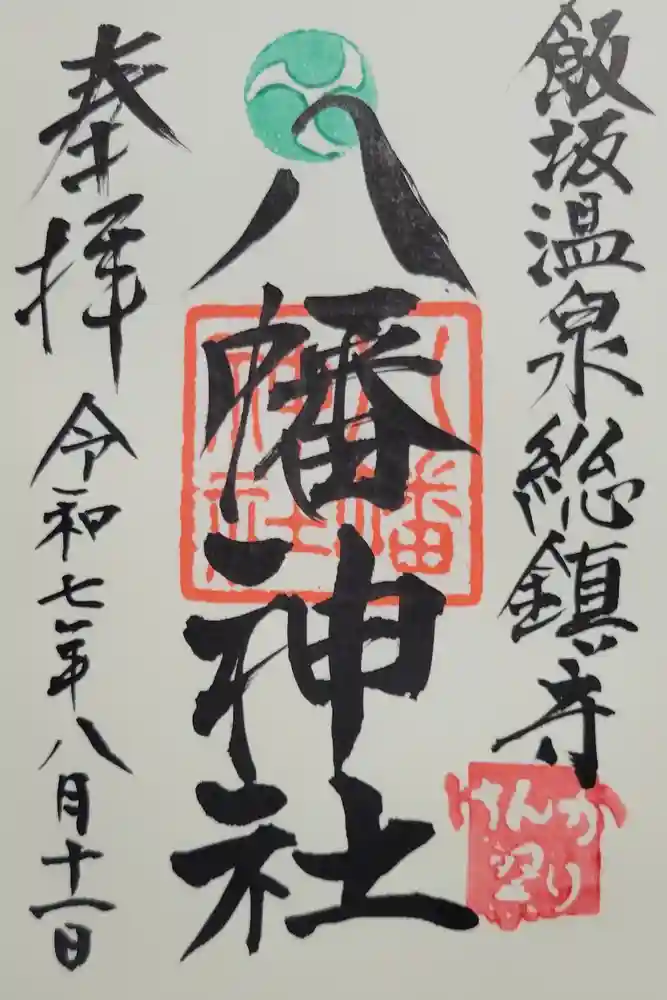 飯坂温泉総鎮守
けんか
祭り
八幡神社
八幡
神社
奉拝
令和七年八月十一日